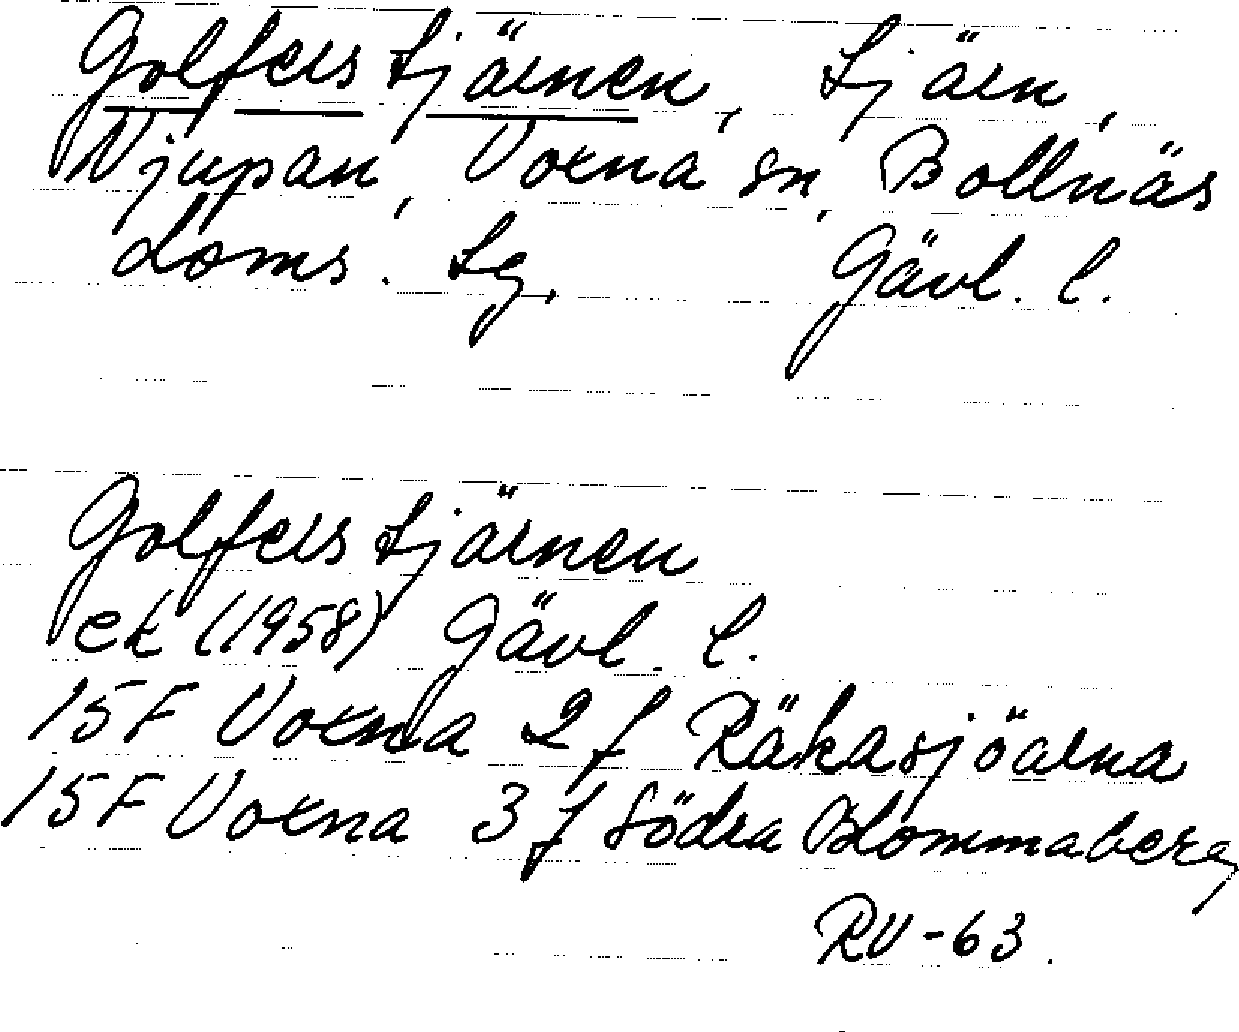 Golfelstjärnen, tjärn,
Njupan, Voxna sn, Bollnäs
doms. tg, Gävl. l.
Golfelstjärnen
ek (1958) Gävl. l.
15F Voxna 2 f Räkasjöarna
15F Voxna 3 f Södra Blommaberg
RV-63.